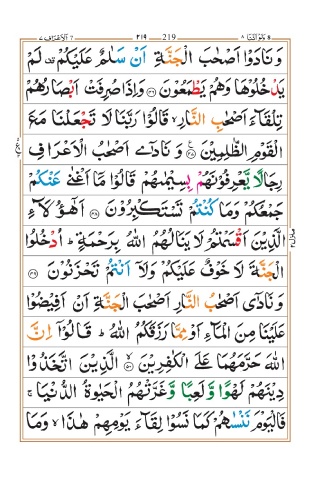 الاعراف ٧ ٢١٩ 219 ولواننا ٨
وَ نَادَوْا اَصْحٰبَ الْجَنَّةِ اَنْ سَلٰمٌ عَلَيْكُمْ لَمْ
يَدْخُلُوْهَا وَهُمْ يَطْمَعُوْنَ ﴿٤٦﴾ وَاِذَا صُرِفَتْ اَبْصَارُهُمْ
تِلْقَآءَ اَصْحٰبِ النَّارِ ۙ قَالُوْا رَبَّنَا لَا تَجْعَلْنَا مَعَ
الْقَوْمِ الظّٰلِمِيْنَ ﴿٤٧﴾ وَ نَادٰٓى اَصْحٰبُ الْاَعْرَافِ
رِجَالًا يَّعْرِفُوْنَهُمْ بِسِيْمٰىهُمْ قَالُوْا مَآ اَغْنٰى عَنْكُمْ
جَمْعُكُمْ وَمَا كُنْتُمْ تَسْتَكْبِرُوْنَ ﴿٤٨﴾ اَهٰٓؤُلَآءِ
الَّذِيْنَ اَقْسَمْتُمْ لَا يَنَالُهُمُ اللّٰهُ بِرَحْمَةٍ ؕ اُدْخُلُوا
الْجَنَّةَ لَا خَوْفٌ عَلَيْكُمْ وَلَآ اَنْتُمْ تَحْزَنُوْنَ ﴿٤٩﴾
وَ نَادٰٓى اَصْحٰبُ النَّارِ اَصْحٰبَ الْجَنَّةِ اَنْ اَفِيْضُوْا
عَلَيْنَا مِنَ الْمَآءِ اَوْ مِمَّا رَزَقَكُمُ اللّٰهُ ؕ قَالُوْٓا اِنَّ
اللّٰهَ حَرَّمَهُمَا عَلَى الْكٰفِرِيْنَ ﴿٥٠﴾ الَّذِيْنَ اتَّخَذُوْا
دِيْنَهُمْ لَهْوًا وَّلَعِبًا وَّ غَرَّتْهُمُ الْحَيٰوةُ الدُّنْيَا ۚ
فَالْيَوْمَ نَنْسٰىهُمْ كَمَا نَسُوْا لِقَآءَ يَوْمِهِمْ هٰذَا ۙ وَمَا